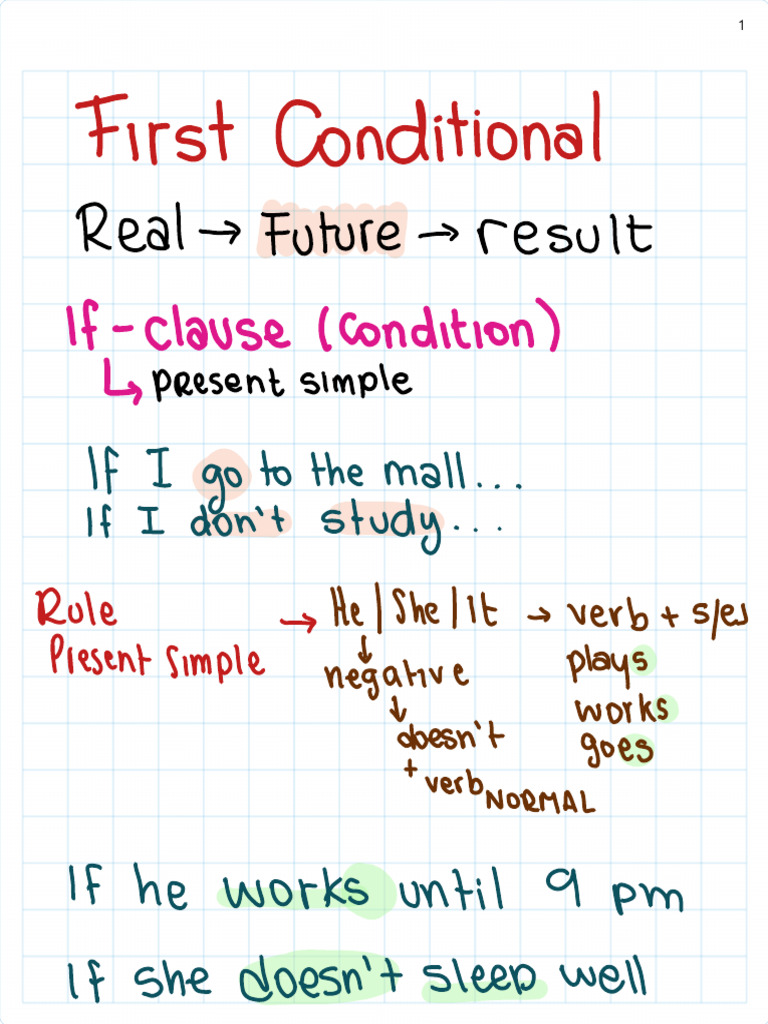 1
First Conditional
Real → Future → result
If-clause (condition)
↳ present simple
If I go to the mall...
If I don't study...
Rule → He/She/It → verb + s/es
Present Simple
↓
negative
↓
doesn't
+ verb NORMAL
plays
works
goes
If he works until 9 pm
If she doesn't sleep well